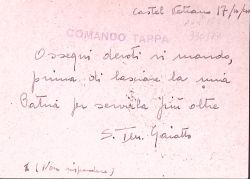 Castel Vetrano 17/
COMANDO TAPPA
Ossequi devoti vi mando,
prima di lasciare la mia
Patria per servirla più oltre
S. Ten. Gaiatto
(Non rispondere)